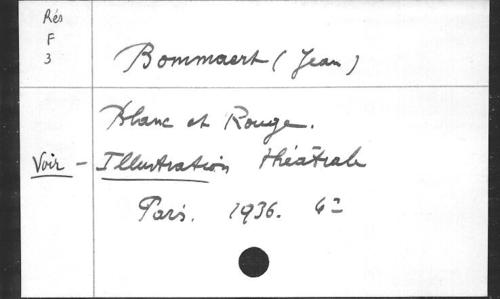 Rés
F
3
Bommaert (Jean)
Blanc et Rouge.
Voir - Illustration théâtrale
Paris. 1936. 4°